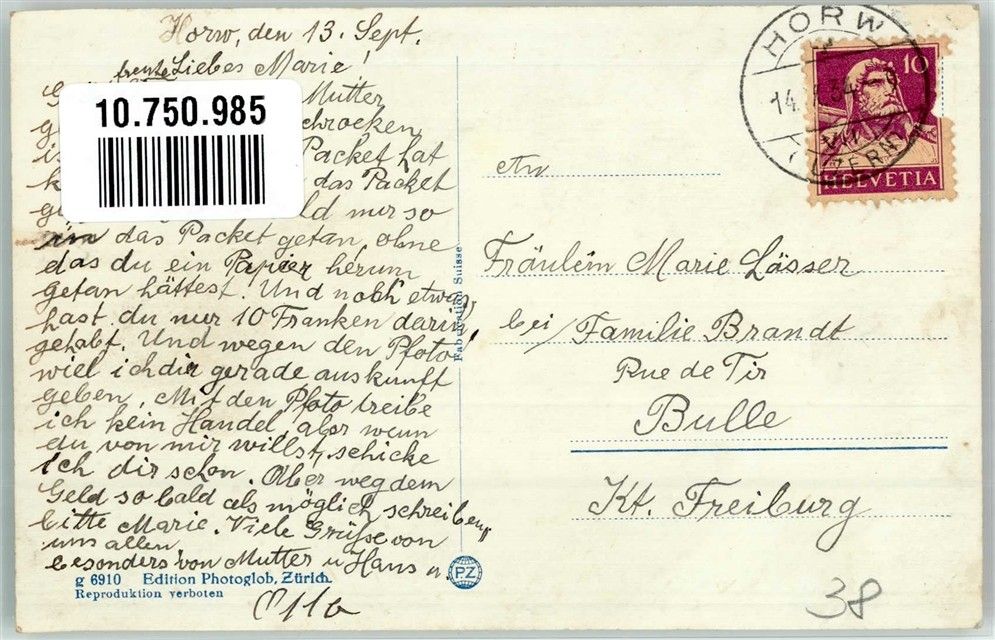 Horw, den 13. Sept.
Liebes Marie!
Mutter
10.750.985
chrocken
Packet hat
das Packet
ld nur so
in das Packet getan, ohne
das du ein Papier herum
getan hättest. Und noch etwas,
hast du nur 10 Franken darin
gehabt. Und wegen den Pfoto
wiel ich dir gerade auskunft
geben. Mit den Pfoto treibe
ich kein Handel, aber wenn
du von mir willst, schicke
ich dir schon. Aber weg dem
Geld so bald als möglich schreiben,
bitte Marie. Viele Grüsse von
uns allen,
besonders von Mutter u Hans u.
Otto
g 6910 Edition Photoglob, Zürich.
Reproduktion verboten
PZ
Fabrication Suisse
HORW
14.
(LUZERN)
10
HELVETIA
An
Fräulein Marie Lässer
bei Familie Brandt
Rue de Tir
Bulle
Kt. Freiburg
38